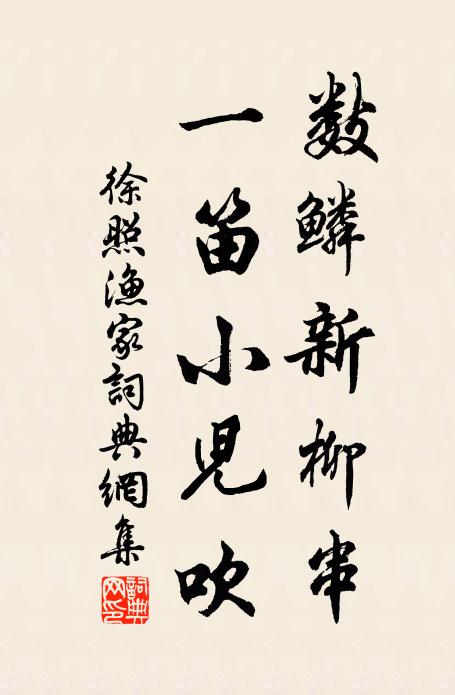 數鱗新柳串
一笛小兒吹
徐照漁家詞典網集
詞典网印